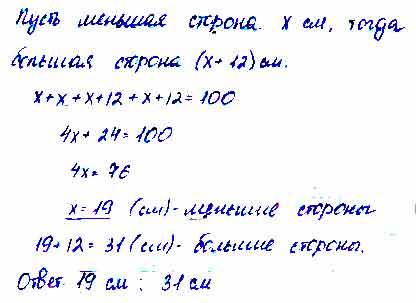 Пусть меньшая сторона x см, тогда
большая сторона (x+12) см.
x+x+x+12+x+12=100
4x+24=100
4x=76
x=19 (см)-меньшие стороны
19+12=31 (см)-большие стороны.
Ответ 19 см; 31 см